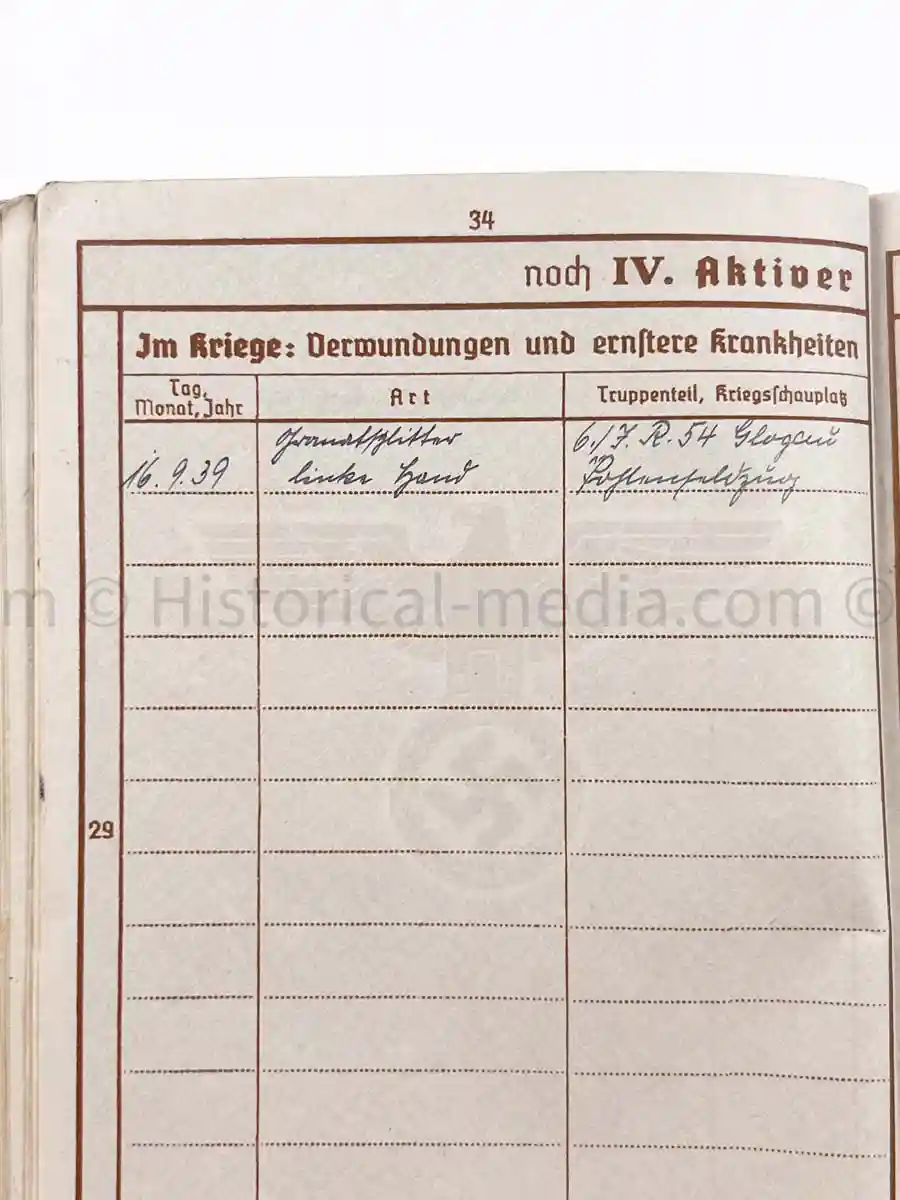 34
noch IV. Aktiver
Im Kriege: Verwundungen und ernstere Krankheiten
Tag, Monat, Jahr
Art
Truppenteil, Kriegsschauplatz
16. 9. 39
Granatsplitter
linke Hand
6./I. R. 54 Glogau
Pohlenfeldzug
m © Historical-media.com ©
29